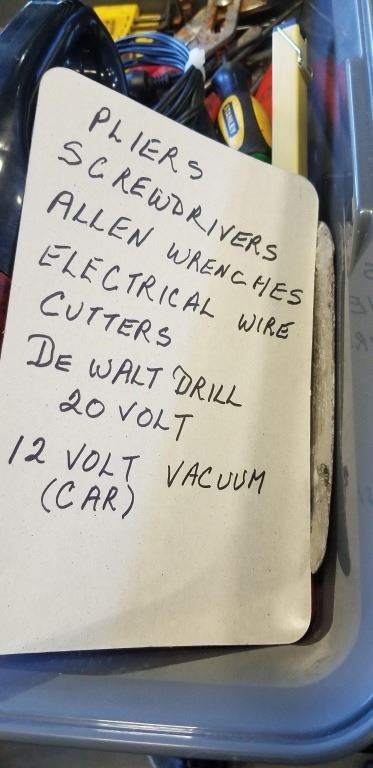 PLIERS
SCREWDRIVERS
ALLEN WRENCHES
ELECTRICAL WIRE
CUTTERS
DE WALT DRILL
20 VOLT
12 VOLT VACUUM
(CAR)
STANLEY